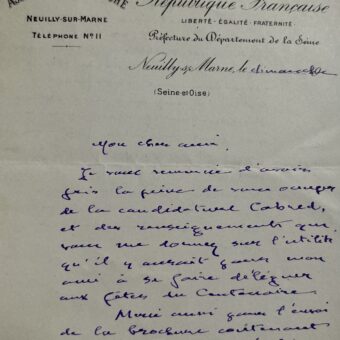 République Française
NEUILLY-SUR-MARNE
TÉLÉPHONE Nº 11
LIBERTÉ - ÉGALITÉ - FRATERNITÉ
Préfecture du Département de la Seine
Neuilly s/ Marne, le dimanche
(Seine et Oise)
Mon cher ami,
Je vous remercie d'avoir
pris la peine de vous occuper
de la candidature Cabred,
et des renseignements que
vous me donnez sur l'utilité
qu'il y aurait pour mon
ami à se faire déléguer
aux fêtes du Centenaire
Merci aussi pour l'envoi
de la brochure contenant